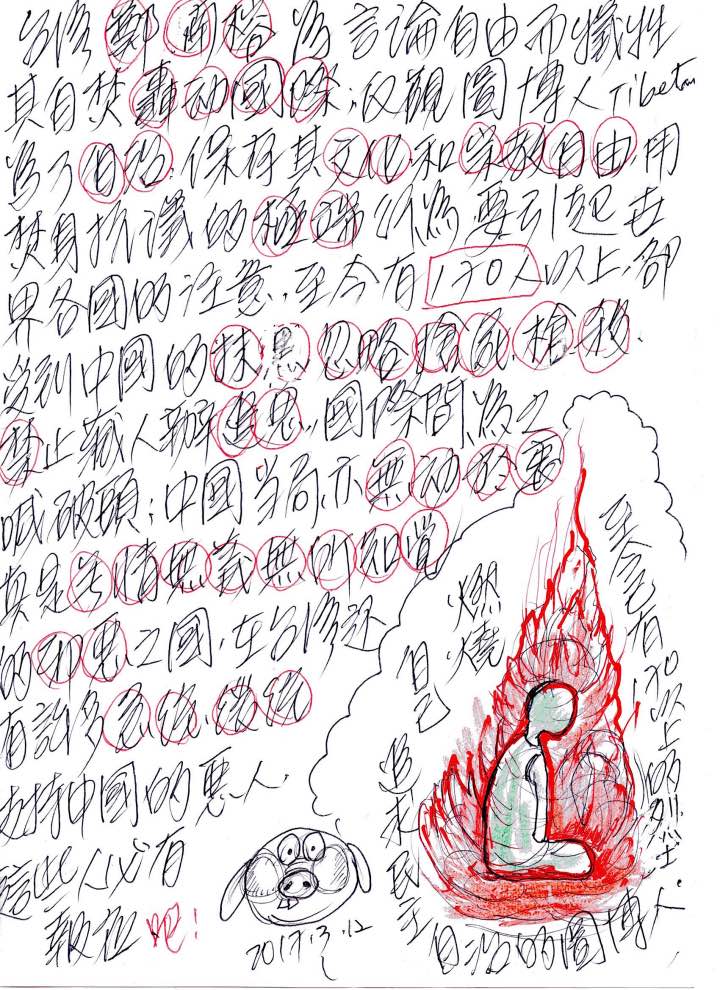 台湾 鄭南榕 為言論自由而犧牲
其自焚轟动國際;反觀圖博人Tibetan
為了自治.保存其文化.和宗教自由,用
焚身抗議的極端行為要引起世
界各國的注意.至今有170人以上,卻
受到中國的抹黑 忽略 槍殺.
禁止藏人辦追思.國際間為之
喊破頭;中國当局亦無动於衷
真是無情無義無所知覚
的邪惡之國,在台湾还
有許多
支持中國的惡人.
這些人必有
報应吧!
2017.3.12
燃燒
自己
追求民主
自治的圖博人
至今已有170以上的烈士.